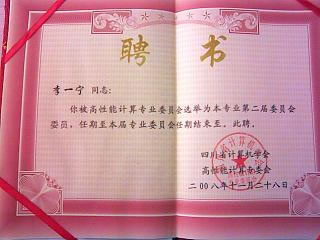 聘书
李一宁 同志：
你被高性能计算专业委员会选举为本专业第二届委员会
委员，任期至本届专业委员会任期结束至。此聘。
四川省计算机学会
高性能计算专委会
二00八年十一月二十八日